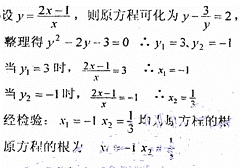 设 y = \frac{2x-1}{x}，则原方程可化为 y - \frac{3}{y} = 2，
整理得 y² - 2y - 3 = 0 ∴ y₁ = 3, y₂ = -1
当 y₁ = 3 时，\frac{2x-1}{x} = 3 ∴ x₁ = -1
当 y₂ = -1 时，\frac{2x-1}{x} = -1 ∴ x₂ = \frac{1}{3}
经检验：x₁ = -1 x₂ = \frac{1}{3} 均为原方程的根
原方程的根为 x₁ = -1 x₂ = \frac{1}{3}